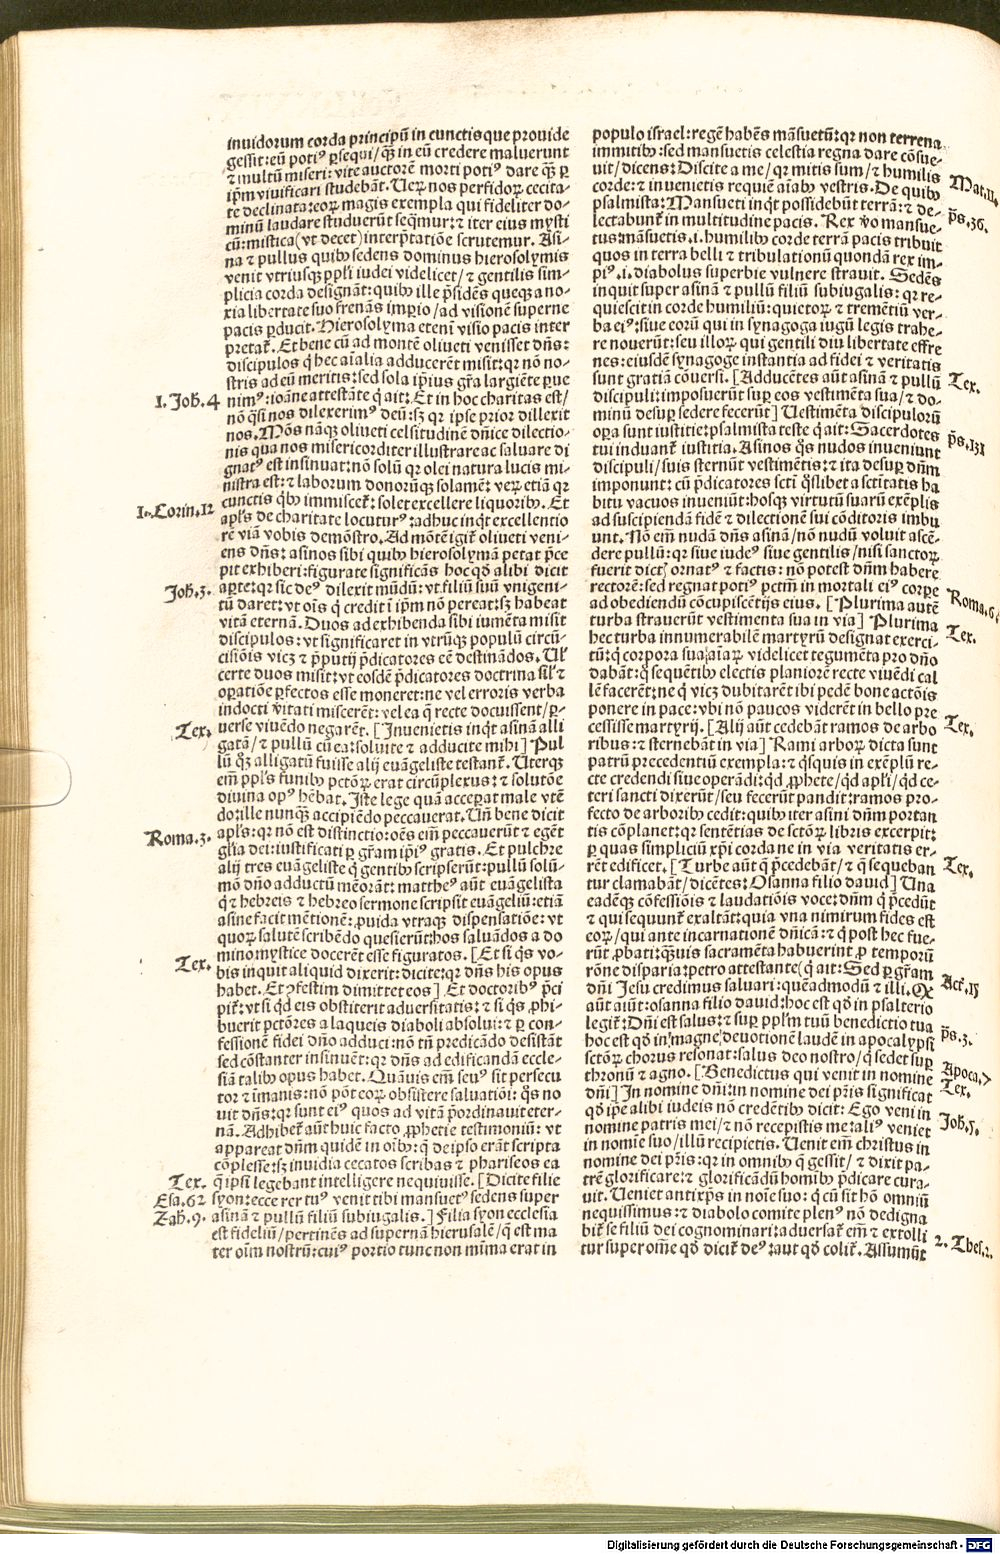 inuidorum corda principũ in cunctis que prouide
gessit: eũ potiꝰ ꝑsequi/ qꝫ̃ in eũ credere maluerunt
⁊ multũ miseri: vite auctorẽ morti potiꝰ dare qꝫ̃ ꝑ
ip̃m viuificari studebãt. Ueꝝ nos perfidoꝝ cecita-
te declinata: eoꝝ magis exempla qui fideliter do-
minũ laudare studuerũt seq̃mur: ⁊ iter eius mysti
cũ: mistica (vt decet) interp̃tatiõe scrutemur. Asi-
na ⁊ pullus quibꝰ sedens dominus hierosolymis
venit vtriusqꝫ ppl̃i iudei videlicet/ ⁊ gentilis sim-
plicia corda designãt: quibꝰ ille p̃sidẽs queqꝫ a no-
xia libertate suo frenãs imꝑio/ ad visionẽ superne
pacis ꝑducit. Hierosolyma eteni᷒ visio pacis inter
pretat᷑. Et bene cũ ad montẽ oliueti venisset dñs:
discipulos q̃ hec aĩalia adducerẽt misit: qꝛ nõ no-
stris ad eũ meritis: sed sola ip̃ius gr̃a largiẽte ꝑue
1. Joh̃. 4 nimꝰ: ioãne attestãte q̃ ait: Et in hoc charitas est/
nõ q̃si nos dilexerimꝰ deũ: sꝫ qꝛ ipse prior dilexit
nos. Mõs nãqꝫ oliueti celsitudinẽ dñice dilectio-
nis qua nos misericorditer illustrare ac saluare di
gnatꝰ est insinuat: nõ solũ qꝛ olei natura lucis mi-
nistra est: ⁊ laborum donorũqꝫ solamẽ: veꝝ etiã qꝛ
cunctis qͥbꝰ immiscet᷑: solet excellere liquoribꝰ. Et
1. Corin. 12 apl̃s de charitate locuturꝰ: adhuc inq̃t excellentio
rẽ viã vobis demõstro. Ad mõtẽ igit᷑ oliueti veni-
ens dñs: asinos sibi quibꝰ hierosolymã petat p̃ce
pit exhiberi: figurate significãs hoc qđ alibi dicit
Joh̃. 3. aꝑte: qꝛ sic deꝰ dilexit mũdũ: vt filiũ suũ vnigeni-
tũ daret: vt oĩs q̃ credit ĩ ip̃m nõ pereat: sꝫ habeat
vitã eternã. Duos ad exhibenda sibi iumẽta misit
discipulos: vt significaret in vtrũqꝫ populũ circũ-
cisiõis vicꝫ ⁊ p̃putij p̃dicatores eẽ destinãdos. Ul̃
certe duos misit: vt eosdẽ p̃dicatores doctrina sil̃ ⁊
oꝑatiõe ꝑfectos esse moneret: ne vel erroris verba
indocti v̾itati miscerẽt: vel ea q̃ recte docuissent/ ꝑ-
uerse viuẽdo negarẽt. [Inuenietis inq̃t asinã alli
Tex. gatã/ ⁊ pullũ cũ ea: soluite ⁊ adducite mihi] Pul
lũ qͦꝫ alligatũ fuisse alij euãgeliste testant᷑. Uterqꝫ
em̃ ppl̃s funibꝰ pctõꝝ erat circũplexus: ⁊ solutõe
diuina opꝰ hẽbat. Iste lege quã acceꝑat male vtẽ
do: ille nunqꝫ̃ accipiẽdo peccauerat. Uñ bene dicit
Roma. 3. apl̃s: qꝛ nõ est distinctio: oẽs em̃ peccauerũt ⁊ egẽt
gl̃ia dei: iustificati ꝑ gr̃am ip̃iꝰ gratis. Et pulchre
alij tres euãgeliste q̃ gentibꝰ scripserũt: pullũ solũ-
mõ dño adductũ meõrãt: mattheꝰ aũt euãgelista
q̃ ⁊ hebreis ⁊ hebreo sermone scripsit euãgeliũ: etiã
asine facit mẽtionẽ: ꝓuida vtraqꝫ dispensatiõe: vt
quoꝝ salutẽ scribẽdo quesierũt: hos saluãdos a do
mino mystice docerẽt esse figuratos. [Et si q̃s vo-
Tex. bis inquit aliquid dixerit: dicite: qꝛ dñs his opus
habet. Et ꝯfestim dimittet eos] Et doctoribꝰ p̃ci
pit᷑: vt si qͥd eis obstiterit aduersitatis: ⁊ si q̃s ꝓhi-
buerit pctõres a laqueis diaboli absolui: ⁊ ꝑ con-
fessionẽ fidei dño adduci: nõ tñ predicãdo desistãt
sed cõstanter insinuẽt: qꝛ dñs ad edificandã eccle-
siã talibꝰ opus habet. Quãuis em̃ seuꝰ sit persecu
tor ⁊ ĩmanis: nõ põt eoꝝ obsistere saluatiõi: qͦs no
uit dñs: qꝛ sunt eiꝰ quos ad vitã p̃ordinauit eter-
nã. Adhibet᷑ aũt huic facto ꝓphetie testimoniũ: vt
appareat dñm quidẽ in oĩbꝰ: q̃ de ipso erãt scripta
cõplesse: sꝫ inuidia cecatos scribas ⁊ phariseos ea
Tex. q̃ ipsi legebant intelligere nequiuisse. [Dicite filie
Esa. 62 syon: ecce rex tuꝰ venit tibi mansuetꝰ sedens super
Zah̃. 9. asinã ⁊ pullũ filiũ subiugalis.] Filia syon ecclesia
est fideliũ/ pertinẽs ad supernã hierusalẽ/ q̃ est ma
ter oĩm nostrũ: cuiꝰ portio tunc non mĩma erat in
populo israel: regẽ habẽs mãsuetũ: qꝛ non terrena
immitibꝰ: sed mansuetis celestia regna dare cõsue-
uit/ dicens: Discite a me/ qꝛ mitis sum/ ⁊ humilis Mat. 11.
corde: ⁊ inuenietis requiẽ aĩabꝰ vestris. De quibꝰ
psalmista: Mansueti inq̃t possidebũt terrã: ⁊ de- p̃s. 36.
lectabunt᷑ in multitudine pacis. Rex v̾o mansue-
tus: mãsuetis .i. humilibꝰ corde terrã pacis tribuit
quos in terra belli ⁊ tribulationũ quondã rex im-
piꝰ .i. diabolus superbie vulnere strauit. Sedẽs
inquit super asinã ⁊ pullũ filiũ subiugalis: qꝛ re-
quiescit in corde humiliũ: quietoꝝ ⁊ tremẽtiũ ver-
ba eiꝰ: siue eorũ qui in synagoga iugũ legis trahe-
re nouerũt: seu illoꝝ qui gentili diu libertate effre
nes: eiusdẽ synagoge instantia ad fidei ⁊ veritatis
sunt gratiã cõuersi. [Adducẽtes aũt asinã ⁊ pullũ Tex.
discipuli: imposuerũt suꝑ eos vestimẽta sua/ ⁊ do-
minũ desuꝑ sedere fecerũt] Uestimẽta discipulorũ
oꝑa sunt iustitie: psalmista teste q̃ ait: Sacerdotes
tui induant᷑ iustitia. Asinos qͦs nudos inueniunt p̃s. 131
discipuli/ suis sternũt vestimẽtis: ⁊ ita desuꝑ dñm
imponunt: cũ p̃dicatores scti᷒ qͦslibet a sctĩtatis ha
bitu vacuos inueniũt: hosqꝫ virtutũ suarũ exẽplis
ad suscipiendã fidẽ ⁊ dilectionẽ sui cõditoris imbu
unt. Nõ em̃ nudã dñs asinã/ nõ nudũ voluit ascẽ-
dere pullũ: qꝛ siue iudeꝰ siue gentilis/ nisi sanctoꝝ
fuerit dictꝭ ornatꝰ ⁊ factis: nõ potest dñm habere
rectorẽ: sed regnat potiꝰ pctm̃ in mortali eiꝰ corꝑe
ad obediendũ cõcupiscẽtijs eius. [Plurima autẽ Roma. 6.
turba strauerũt vestimenta sua in via] Plurima Tex.
hec turba innumerabilẽ martyrũ designat exerci-
tũ: q̃ corpora sua aĩaꝝ videlicet tegumẽta pro dño
dabãt: qͦ sequẽtibꝰ electis planiorẽ recte viuẽdi cal
lẽ facerẽt: ne q̃ vicꝫ dubitarẽt ibi pedẽ bone actõis
ponere in pace: vbi nõ paucos viderẽt in bello pre
cessisse martyrij. [Alij aũt cedebãt ramos de arbo Tex.
ribus: ⁊ sternebãt in via] Rami arboꝝ dicta sunt
patrũ precedentiũ exempla: ⁊ q̃squis in exẽplũ re-
cte credendi siue operãdi: qͥd ꝓphete/ qͥd apl̃i/ qͥd ce-
teri sancti dixerũt/ seu fecerũt pandit: ramos pro-
fecto de arboribꝰ cedit: quibꝰ iter asini dñm portan
tis cõplanet: qꝛ sentẽtias de sctõꝝ libris excerpit:
ꝑ quas simpliciũ xp̃i corda ne in via veritatis er-
rẽt edificet. [Turbe aũt q̃ p̃cedebãt/ ⁊ q̃ sequeban Tex.
tur clamabãt/ dicẽtes: Osanna filio dauid] Una
eadẽqꝫ cõfessiõis ⁊ laudatiõis voce: dñm q̃ p̃cedũt
⁊ qui sequunt᷑ exaltãt: quia vna nimirum fides est
eoꝝ/ qui ante incarnationẽ dñicã: ⁊ q̃ post hec fue-
rũt ꝓbati: qꝫuis sacramẽta habuerint ꝓ temporũ
rõne disparia: petro attestante (q̃ ait: Sed ꝑ gr̃am
dñi Jesu credimus saluari: quẽadmodũ ⁊ illi. Qꝛ Act᷑. 15
aũt aiunt: osanna filio dauid: hoc est qđ in psalterio
legit᷑: Dñi est salus: ⁊ suꝑ ppl̃m tuũ benedictio tua p̃s. 3.
hoc est qđ in magne deuotionẽ laudẽ in apocalypsi
sctõꝝ chorus resonat: salus deo nostro/ q̃ sedet suꝑ Apoca. 7
thronũ ⁊ agno. [Benedictus qui venit in nomine Tex.
dñi] In nomine dñi: in nomine dei pr̃is significat
qđ ip̃e alibi iudeis nõ credẽtibꝰ dicit: Ego veni in Joh̃. 5.
nomine patris mei/ ⁊ nõ recepistis me: aliꝰ veniet
in nomĩe suo/ illũ recipietis. Uenit em̃ christus in
nomine dei pr̃is: qꝛ in omnibꝰ q̃ gessit/ ⁊ dixit pa-
trẽ glorificare: ⁊ glorificãdũ homĩbꝰ p̃dicare cura-
uit. Ueniet antixp̃s in noĩe suo: q̃ cũ sit hõ omniũ
nequissimus: ⁊ diabolo comite plenꝰ nõ dedigna
bit᷑ se filiũ dei cognominari: aduersat᷑ em̃ ⁊ extolli
tur super om̃e qđ dicit᷑ deꝰ: aut qđ colit᷑. Assumũt 2. Thes. 2.
Digitalisierung gefördert durch die Deutsche Forschungsgemeinschaft - DFG